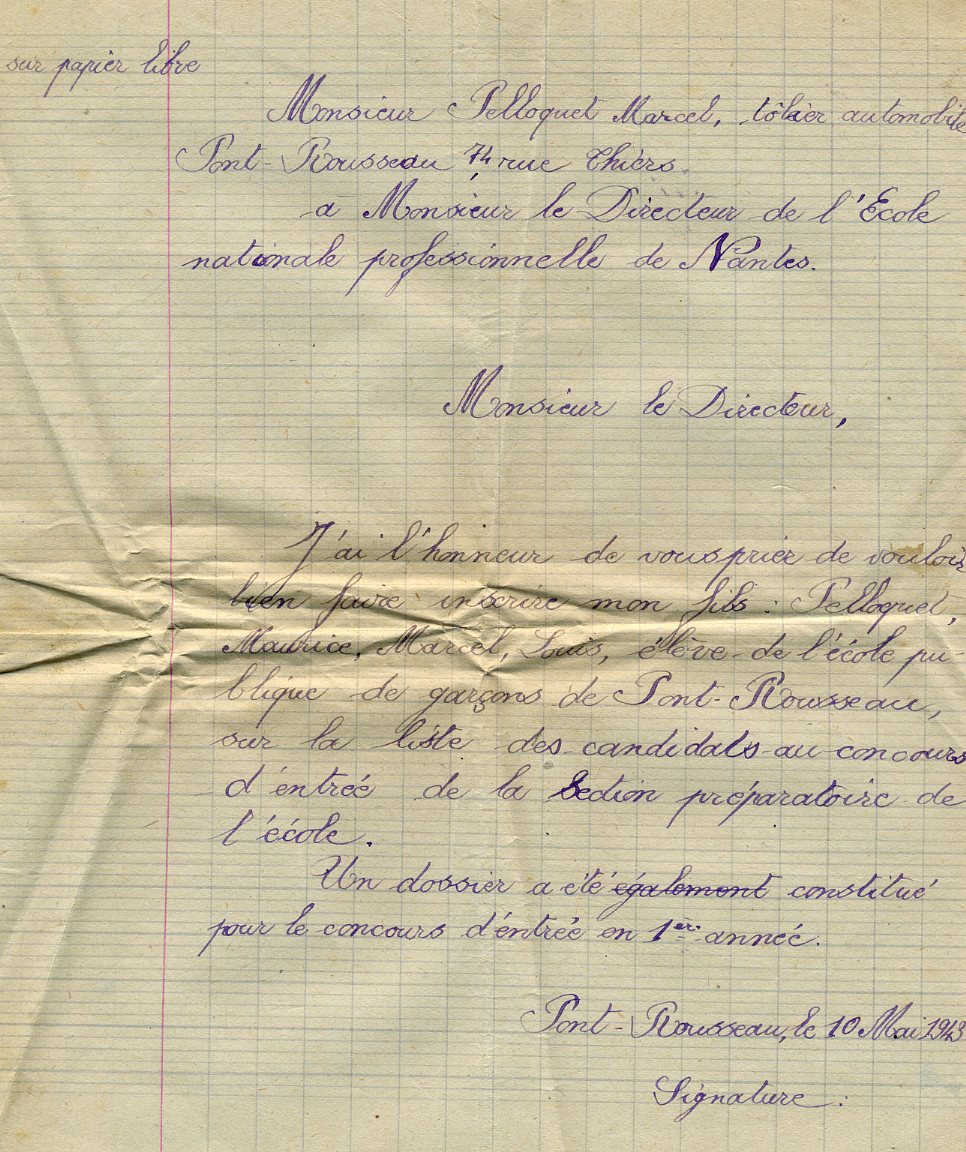 sur papier libre
Monsieur Pelloquet Marcel, tôlier automobile
Pont-Rousseau 74, rue Thiers.
à Monsieur le Directeur de l'Ecole
nationale professionnelle de Nantes.
Monsieur le Directeur,
J'ai l'honneur de vous prier de vouloir
bien faire inscrire mon fils : Pelloquet,
Maurice, Marcel, Louis, élève de l'école pu-
blique de garçons de Pont-Rousseau,
sur la liste des candidats au concours
d'entrée de la Section préparatoire de
l'école.
Un dossier a été également constitué
pour le concours d'entrée en 1ère année.
Pont-Rousseau, le 10 Mai 1943
Signature :